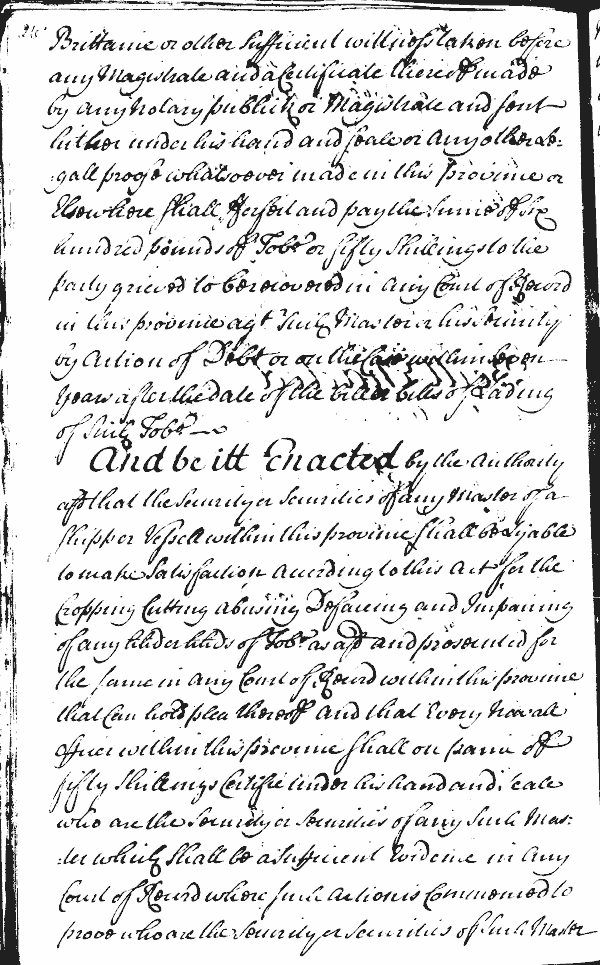 Brittanie or other Sufficient wittness taken before
any Magistrate and a Certificate thereof made
by any Notary publick or Magistrate and sent
hither under his hand and seale or any other Le-
gall proofe whatsoever made in this province or
Elsewhere Shall forfeit and pay the Sume of Six
hundred pounds of Tobo or fifty Shillings to the
party grieved to be recovered in any Court of Record
in this province agt Such Master or his Security
by Action of Debt or on the Case within Seven
Years after the date of the bill or bills of Lading
of Such Tobo
And be itt Enacted by the Authority
afd that the Security or Securities of any Master of a
Shipp or Vessell within this province Shall be Lyable
to make Satisfaction according to this Act for the
Cropping Cutting abusing Defaceing and Impairing
of any hhds of Tobo as afd and prosecuted for
the same in any Court of Record within this province
that Can hold plea thereof And that Every Navall
officer within this province Shall on paine of
fifty Shillings Certifie under his hand and Seale
who are the Security or Securities of any Such Mas-
-ter which Shall be a Sufficient Evidence in any
Court of Record where such Action is Commenced to
prove who are the Security or Securities of Such Master